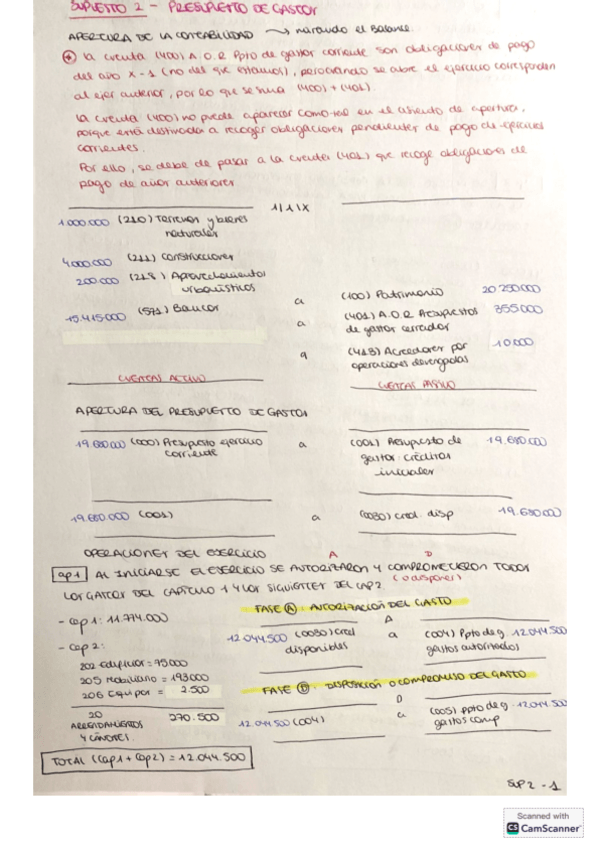 SUPUESTO 2 - PRESUPUESTO DE GASTOS
APERTURA DE LA CONTABILIDAD → mirando el Balance.
* La cuenta (400) A.O.R Ppto de gastos corriente son obligaciones de pago
del año X-1 (no del que estamos), pero cuando se abre el ejercicio corresponden
al ejer anterior, por lo que se suma (400) + (401).
La cuenta (400) no puede aparecer como tal en el asiento de apertura,
porque está destinada a recoger obligaciones pendientes de pago de ejercicios
corrientes.
Por ello, se debe de pasar a la cuenta (401) que recoge obligaciones de
pago de años anteriores
1/1/X
1000.000 (210) Terrenos y bienes
naturales
4000.000 (211) Construcciones
200.000 (218) Aprovechamientos
urbanísticos
15.415000 (571) Bancos
a (100) Patrimonio 20 250000
a (401) A.O.R Presupuestos
de gastos cerrados 355000
a (413) Acreedores por
operaciones devengadas 10000
CUENTAS ACTIVO
CUENTAS PASIVO
APERTURA DEL PRESUPUESTO DE GASTOS
19.680.000 (000) Presupuesto ejercicio
corriente
a (001) Presupuesto de
gastos: créditos
iniciales 19.680000
19.680.000 (001) a (0030) cred. disp 19.680000
OPERACIONES DEL EJERCICIO A D
op 1 AL INICIARSE EL EJERCICIO SE AUTORIZARON Y COMPROMETIERON TODOS
(o disponer)
LOS GASTOS DEL CAPÍTULO 1 Y LOS SIGUIENTES DEL CAP 2.
- Cap 1: 11.774.000
- Cap 2:
202 Edificios = 75000
205 Mobiliario = 193000
206 Equipos = 2.500
20 270.500
ARRENDAMIENTOS
Y CÁNONES.
FASE A: AUTORIZACIÓN DEL GASTO
A
12.044.500 (0030) Cred
disponibles
a (004) Ppto de g 12.044.500
gastos autorizados
FASE D: DISPOSICIÓN O COMPROMISO DEL GASTO
D
12.044.500 (004) a (005) ppto de g 12.044.500
gastos comp
TOTAL (Cap 1 + Cap 2) = 12.044.500
SUP 2 - 1
Scanned with
CS CamScanner